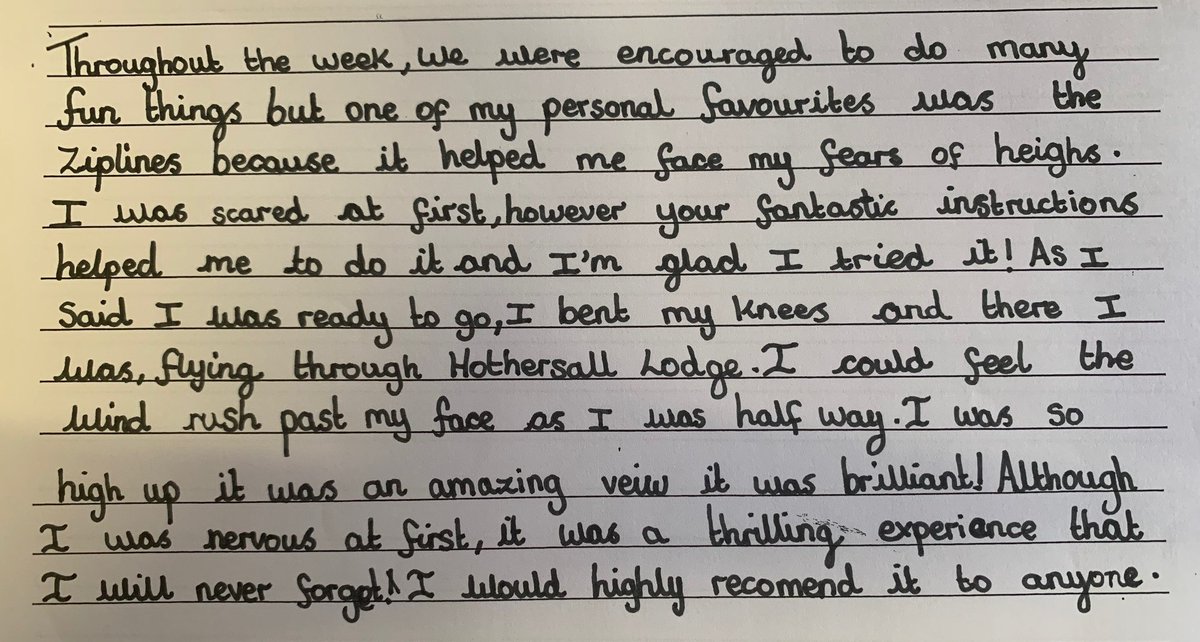 Throughout the week, we were encouraged to do many
fun things but one of my personal favourites was the
Ziplines because it helped me face my fears of heighs.
I was scared at first, however your fantastic instructions
helped me to do it and I'm glad I tried it! As I
said I was ready to go, I bent my knees and there I
was, flying through Hothersall Lodge. I could feel the
wind rush past my face as I was half way. I was so
high up it was an amazing veiw it was brilliant! Although
I was nervous at first, it was a thrilling experience that
I will never forget! I would highly recomend it to anyone.